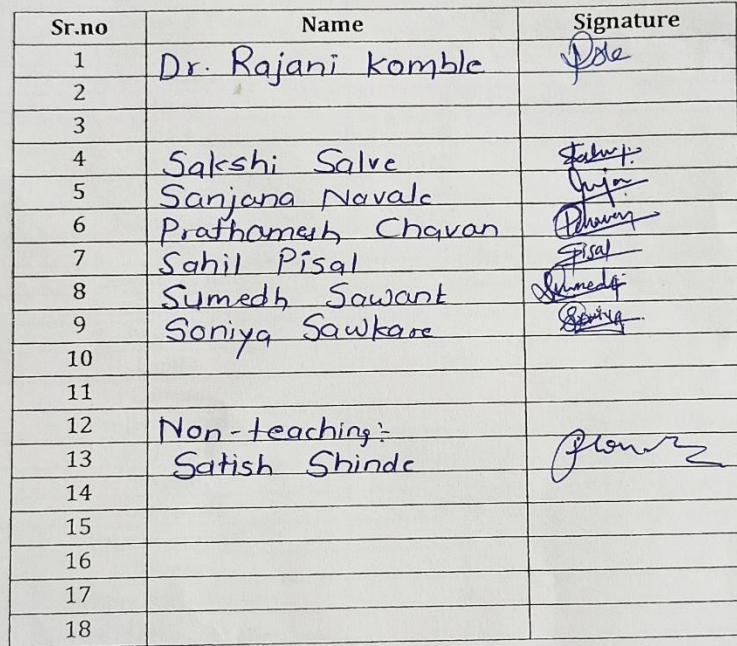 Sr.no Name Signature
1 Dr. Rajani Komble
2
3
4 Sakshi Salve
5 Sanjana Navale
6 Prathamesh Chavan
7 Sahil Pisal Pisal
8 Sumedh Sawant Sumedh
9 Soniya Sawkare Soniya
10
11
12 Non-teaching:-
13 Satish Shinde
14
15
16
17
18